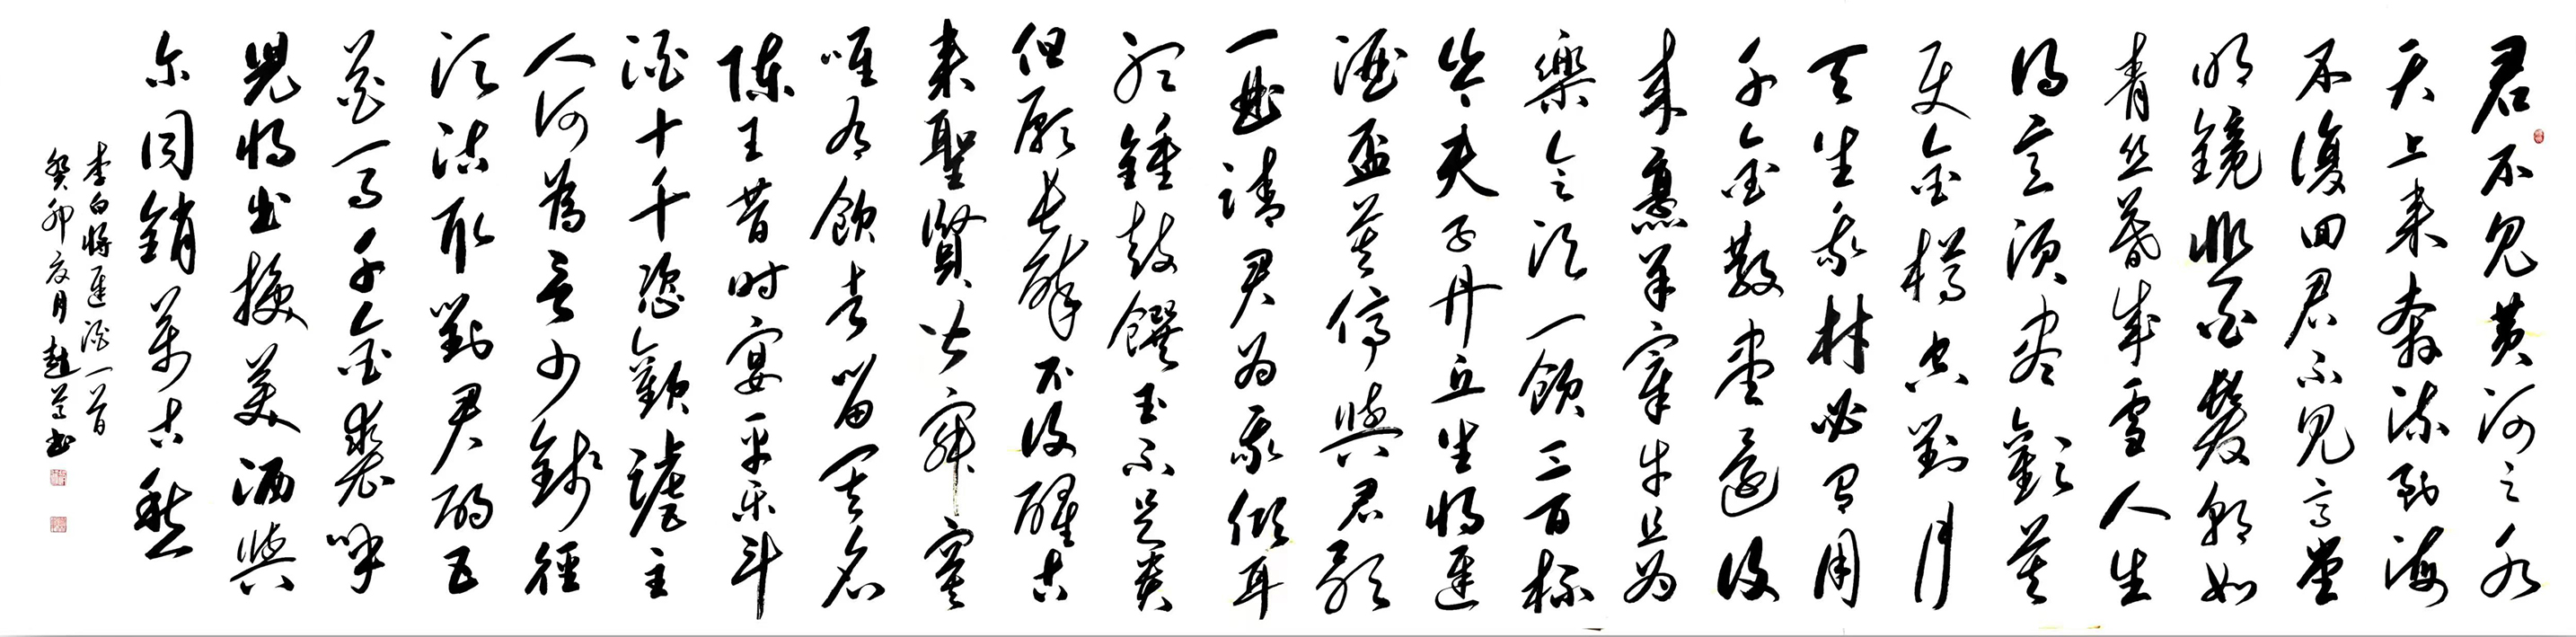 君不見黃河之水
天上來奔流到海
不復回君不見高堂
明鏡悲白髮朝如
青絲暮成雪人生
得意須盡歡莫
使金樽空對月
天生我材必有用
千金散盡還復
來烹羊宰牛且為
樂會須一飲三百杯
岑夫子丹丘生將進
酒盃莫停與君歌
一曲請君为我傾耳
聽鍾鼓饌玉不足貴
但願長醉不復醒古
來聖賢皆寂寞
唯有飲者留其名
陳王昔时宴平乐斗
酒十千恣歡謔主
人何為言少錢徑
須沽取對君酌五
花馬千金裘呼
兒將出換美酒與
尔同銷萬古愁
李白將進酒一首
癸卯夏月趙書